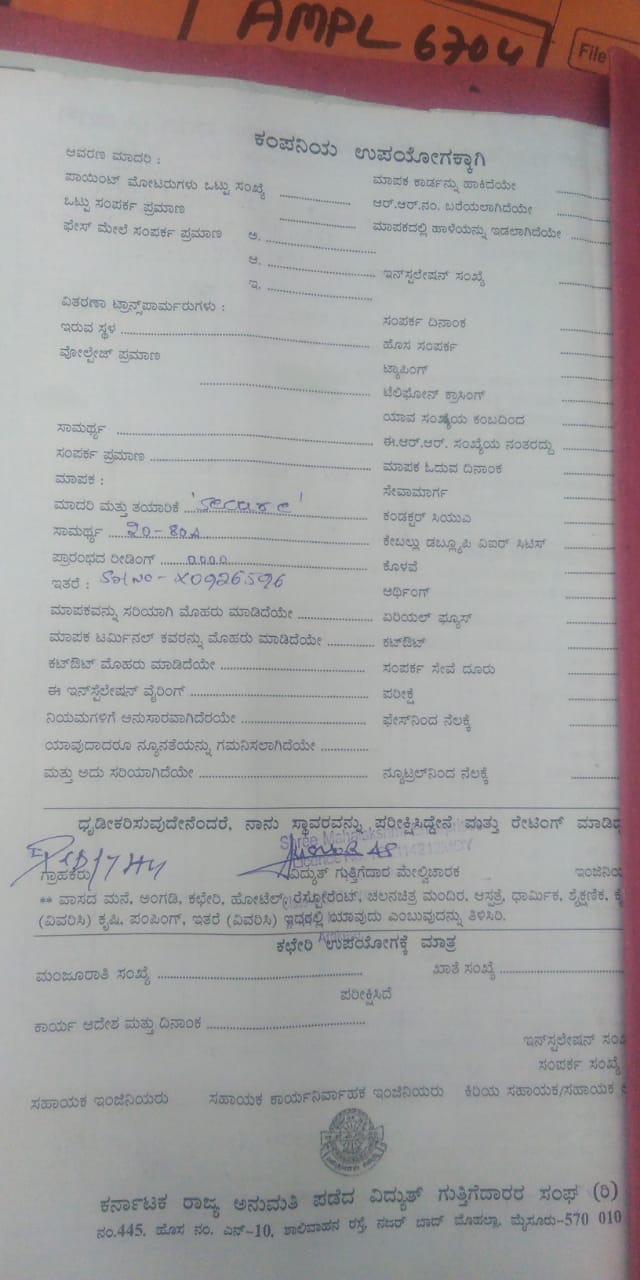 AMPL 6704
File
ಕಂಪನಿಯ ಉಪಯೋಗಕ್ಕಾಗಿ
ಆವರಣ ಮಾದರಿ :
ಪಾಯಿಂಟ್ ಮೋಟರುಗಳು ಒಟ್ಟು ಸಂಖ್ಯೆ ಮಾಪಕ ಕಾರ್ಡನ್ನು ಹಾಕಿದೆಯೇ
ಒಟ್ಟು ಸಂಪರ್ಕ ಪ್ರಮಾಣ ಆರ್.ಆರ್.ನಂ. ಬರೆಯಲಾಗಿದೆಯೇ
ಫೇಸ್ ಮೇಲೆ ಸಂಪರ್ಕ ಪ್ರಮಾಣ ಅ. ಮಾಪಕದಲ್ಲಿ ಹಾಳೆಯನ್ನು ಇಡಲಾಗಿದೆಯೇ
ಆ. ಇನ್‌ಸ್ಟಲೇಷನ್ ಸಂಖ್ಯೆ
ಇ.
ವಿತರಣಾ ಟ್ರಾನ್ಸ್‌ಪಾರ್ಮರುಗಳು : ಸಂಪರ್ಕ ದಿನಾಂಕ
ಇರುವ ಸ್ಥಳ ಹೊಸ ಸಂಪರ್ಕ
ವೋಲ್ಟೇಜ್ ಪ್ರಮಾಣ ಟ್ಯಾಪಿಂಗ್
ಟೆಲಿಫೋನ್ ಕ್ರಾಸಿಂಗ್
ಯಾವ ಸಂಖ್ಯೆಯ ಕಂಬದಿಂದ
ಸಾಮರ್ಥ್ಯ ಈ.ಆರ್.ಆರ್. ಸಂಖ್ಯೆಯ ನಂತರದ್ದು
ಸಂಪರ್ಕ ಪ್ರಮಾಣ ಮಾಪಕ ಓದುವ ದಿನಾಂಕ
ಮಾಪಕ : ಸೇವಾಮಾರ್ಗ
ಮಾದರಿ ಮತ್ತು ತಯಾರಿಕೆ 'Secure' ಕಂಡಕ್ಟರ್ ಸಿಯುಎ
ಸಾಮರ್ಥ್ಯ 20-80A ಕೇಬಲ್ಲು ಡಬ್ಲ್ಯೂಪಿ ವಿಐರ್ ಸಿಟಿಸ್
ಪ್ರಾರಂಭದ ರೀಡಿಂಗ್ 0000 ಕೊಳವೆ
ಇತರೆ : Sl No - X0926596 ಅರ್ಥಿಂಗ್
ಮಾಪಕವನ್ನು ಸರಿಯಾಗಿ ಮೊಹರು ಮಾಡಿದೆಯೇ ಏರಿಯಲ್ ಫ್ಯೂಸ್
ಮಾಪಕ ಟರ್ಮಿನಲ್ ಕವರನ್ನು ಮೊಹರು ಮಾಡಿದೆಯೇ ಕಟ್‌ಔಟ್
ಕಟ್‌ಔಟ್ ಮೊಹರು ಮಾಡಿದೆಯೇ ಸಂಪರ್ಕ ಸೇವೆ ದೂರು
ಈ ಇನ್‌ಸ್ಟೆಲೇಷನ್ ವೈರಿಂಗ್ ಪರೀಕ್ಷೆ
ನಿಯಮಗಳಿಗೆ ಅನುಸಾರವಾಗಿದೆರಯೇ ಫೇಸ್‌ನಿಂದ ನೆಲಕ್ಕೆ
ಯಾವುದಾದರೂ ನ್ಯೂನತೆಯನ್ನು ಗಮನಿಸಲಾಗಿದೆಯೇ
ಮತ್ತು ಅದು ಸರಿಯಾಗಿದೆಯೇ ನ್ಯೂಟ್ರಲ್‌ನಿಂದ ನೆಲಕ್ಕೆ
ಧೃಡೀಕರಿಸುವುದೇನೆಂದರೆ, ನಾನು ಸ್ಥಾವರವನ್ನು ಪರೀಕ್ಷಿಸಿದ್ದೇನೆ ಮತ್ತು ರೇಟಿಂಗ್
ಗ್ರಾಹಕರು ವಿದ್ಯುತ್ ಗುತ್ತಿಗೆದಾರ ಮೇಲ್ವಿಚಾರಕ
** ವಾಸದ ಮನೆ, ಅಂಗಡಿ, ಕಛೇರಿ, ಹೋಟೆಲ್, ರೆಸ್ಟೋರೆಂಟ್, ಚಲನಚಿತ್ರ ಮಂದಿರ, ಆಸ್ಪತ್ರೆ, ಧಾರ್ಮಿಕ, ಶೈಕ್ಷಣಿಕ,
(ವಿವರಿಸಿ) ಕೃಷಿ, ಪಂಪಿಂಗ್, ಇತರೆ (ವಿವರಿಸಿ) ಇದರಲ್ಲಿ ಯಾವುದು ಎಂಬುವುದನ್ನು ತಿಳಿಸಿರಿ.
ಕಛೇರಿ ಉಪಯೋಗಕ್ಕೆ ಮಾತ್ರ
ಮಂಜೂರಾತಿ ಸಂಖ್ಯೆ ಖಾತೆ ಸಂಖ್ಯೆ
ಪರೀಕ್ಷಿಸಿದೆ
ಕಾರ್ಯ ಆದೇಶ ಮತ್ತು ದಿನಾಂಕ
ಇನ್‌ಸ್ಟಲೇಷನ್
ಸಂಪರ್ಕ ಸಂಖ್ಯೆ
ಸಹಾಯಕ ಇಂಜಿನಿಯರು ಸಹಾಯಕ ಕಾರ್ಯನಿರ್ವಾಹಕ ಇಂಜಿನಿಯರು ಕಿರಿಯ ಸಹಾಯಕ/ಸಹಾಯಕ
ಕರ್ನಾಟಕ ರಾಜ್ಯ ಅನುಮತಿ ಪಡೆದ ವಿದ್ಯುತ್ ಗುತ್ತಿಗೆದಾರರ ಸಂಘ (ರಿ)
ನಂ.445, ಹೊಸ ನಂ. ಎನ್-10, ಶಾಲಿವಾಹನ ರಸ್ತೆ, ನಜರ್ ಬಾದ್ ಮೊಹಲ್ಲಾ, ಮೈಸೂರು-570 010